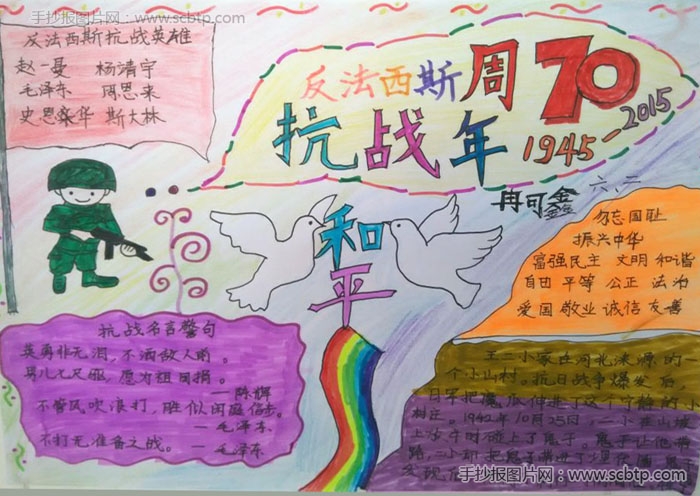 手抄报图片网：www.scbtp.com
反法西斯抗战英雄
赵一曼 杨清宇
毛泽东 周恩来
史思 华 斯大林
反法西斯
抗战 70
周年
1945-2015
冉可鑫 六、二
和平
勿忘国耻
振兴中华
富强民主 文明 和谐
自由 平等 公正 法治
爱国 敬业 诚信 友善
抗战名言警句
英勇非无泪，不洒敌人前。
男儿七尺躯，愿为祖国捐。
—陈辉
不管风吹浪打，胜似闲庭信步。
—毛泽东
不打无准备之战。—毛泽东
王二小家在河北涞源的
一个小山村。抗日战争爆发后，
日军把魔爪伸进了这个宁静的小
村庄。1942年10月25日，二小在山坡
上放牛时碰上了鬼子。鬼子让他带
路，二小却把鬼子带进了埋伏圈
发现
手抄报图片网：www.scbtp.com